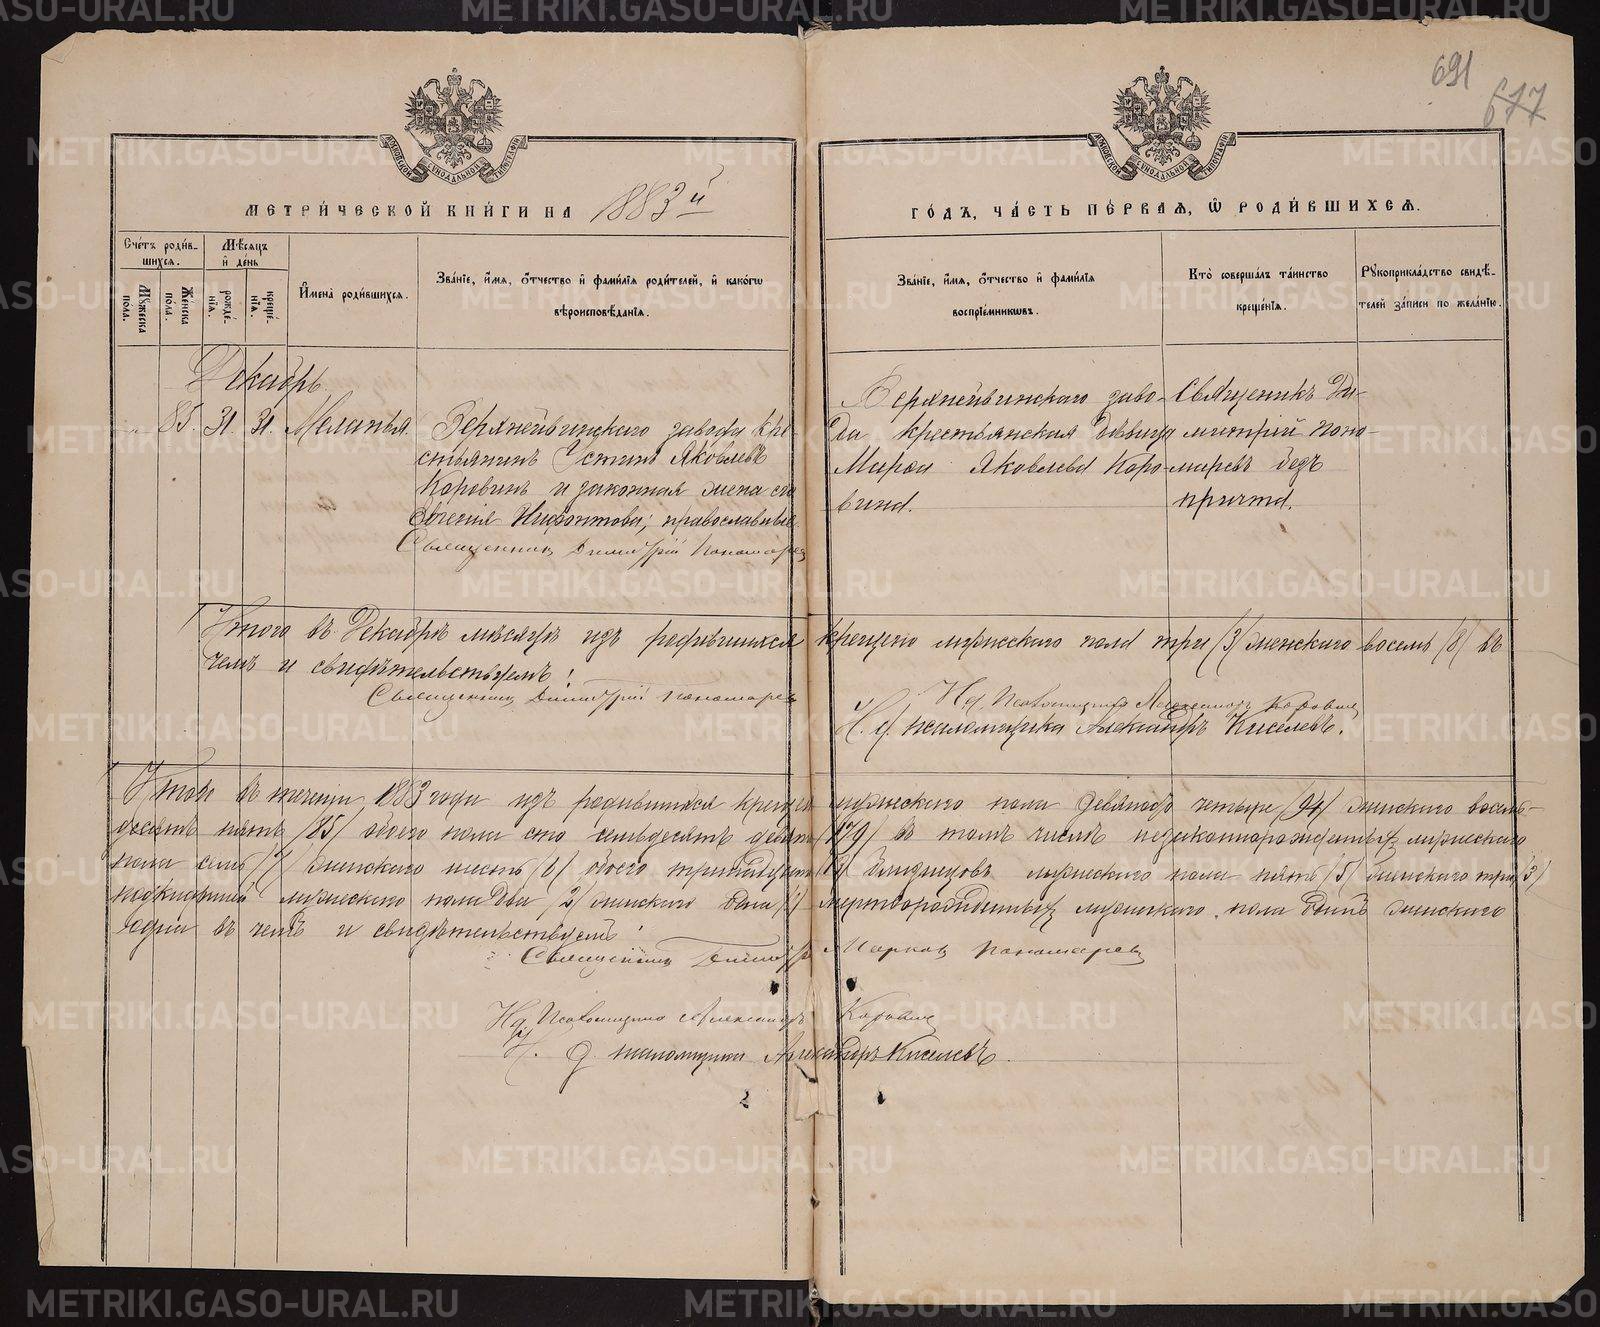 691
677
МЕТРИ́ЧЕСКОЙ КНИ́ГИ НА 1883й
ГО́ДЪ, ЧА́СТЬ ПЕ́РВАѦ, Ѿ РОДИ́ВШИХСѦ.
МОСКОВСКОЙ СУНОДАЛЬНОЙ ТИПОГРАФІИ
МОСКОВСКОЙ СУНОДАЛЬНОЙ ТИПОГРАФІИ
Сче́тъ роди́в-
шихсѧ.
Мꙋжеска
пола.
Же́нска
пола.
Мѣ́сѧцъ
й де́нь
рожде́-
нїѧ.
креще́-
нїѧ.
И҆мена̀ роди́вшихсѧ.
Зва́нїе, и҆́мѧ, ѻ҆́тчество и҆ фами́лїѧ роди́телей, и҆ како́гѡ
вѣроисповѣ́данїѧ.
Зва́нїе, и҆́мѧ, ѻ҆́тчество и҆ фами́лїѧ
воспрїе́мникѡвъ.
Кто̀ соверша́лъ та́инство
креще́нїѧ.
Рꙋкоприкла́дство свидѣ́-
телей за́писи по жела́нїю.
Декабрь.
85. 31. 31. Меланья
Верхнейвинского завода кре-
стьянинъ Устинъ Яковлевъ
Коровинъ и законная жена его
Евгенія Нифонтова; православные
Священникъ Димитрій Пономарев
Верхнейвинского заво-
да крестьянская девица
Мария Яковлева Коро-
вина.
Священикъ Ди-
митрій Поно-
маревъ безъ
причта.
Итого въ Декабрѣ мѣсяцѣ изъ родившихся крещено мужеского пола три /3/ женского восемь /8/ въ
чемъ и свидѣтельствуемъ!
Священникъ Димитрій Пономарев
И.д. Псаломщика Александръ Коровин
И. д. псаломщика Александръ Киселевъ.
Итого въ теченіи 1883 года изъ родившихся крещено мужеского пола девяносто четыре /94/ женского восемь-
десятъ пять /85/ обоего пола сто семьдесятъ девять /179/ въ томъ числѣ незаконнорожденныхъ мужеского
пола семь /7/ женского шесть /6/ обоего тринадцать /13/ близнецовъ мужеского пола пять /5/ женского три /3/
подкидышей мужеского пола два /2/ женского одна /1/ мертворожденныхъ мужеского пола одинъ женского
одна въ чемъ и свидѣтельствуемъ!
Священникъ Димитрій Марков Пономарев
И.д. Псаломщика Александръ Коровин
И. д. псаломщика Александръ Киселевъ.
METRIKI.GASO-URAL.RU